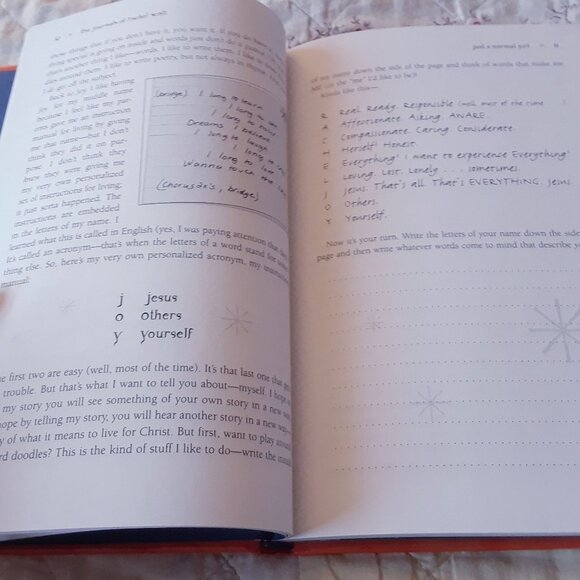 the journals of rachel scott
those things that if you don't have it, you want it. If you do have it,
thing special is going on inside and words just don't do a
that's another thing I love—words. I like to write them. I like to
ties around them. I like to write poetry, but not always in rhyme.
I do get off the subject.
Back to joy. I like having
joy for my middle name
because I feel like my par-
ents gave me an instruction
manual for living by giving
me that name—but I don't
think they did it on pur-
pose. I don't think they
knew they were giving me
my very own personalized
set of instructions for living;
it just sorta happened. The
instructions are embedded
in the letters of my name. I
(bridge) I long to learn
I long to
I long to
Dreams I believe
I long to laugh
I long to
I long to
Wanna touch the
(Chorus 2x's, bridge)
learned what this is called in English (yes, I was paying attention that
It's called an acronym—that's when the letters of a word stand for
thing else. So, here's my very own personalized acronym, my
manual:
j jesus
o others
y yourself
The first two are easy (well, most of the time). It's that last one that
trouble. But that's what I want to tell you about—myself. I hope
my story you will see something of your own story in a new
hope by telling my story, you will hear another story in a new
of what it means to live for Christ. But first, want to play around
doodles? This is the kind of stuff I like to do—write the
just a normal girl
of my name down the side of the page and think of words that make me
(or the "me" I'd like to be)!
Kinda like this—
R Real. Ready. Responsible (well, most of the time
A Affectionate. Asking. AWARE.
C Compassionate. Caring. Considerate.
H Herself! Honest.
E Everything! I want to experience Everything!
L Loving. Lost. Lonely . . . sometimes.
J Jesus. That's all. That's EVERYTHING. Jesus.
O Others.
Y Yourself.
Now it's your turn. Write the letters of your name down the side
page and then write whatever words come to mind that describe